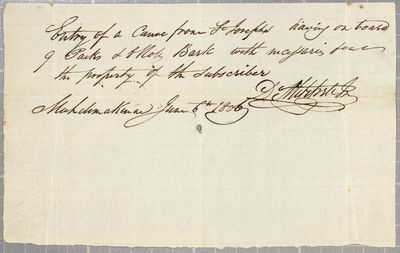 Entry of a Canoe from St Josephs having on board
9 Packs & Bark with necessaries
the property of the Subscriber
D. Mitchell Jr
Michilimakinac June 6th 1806